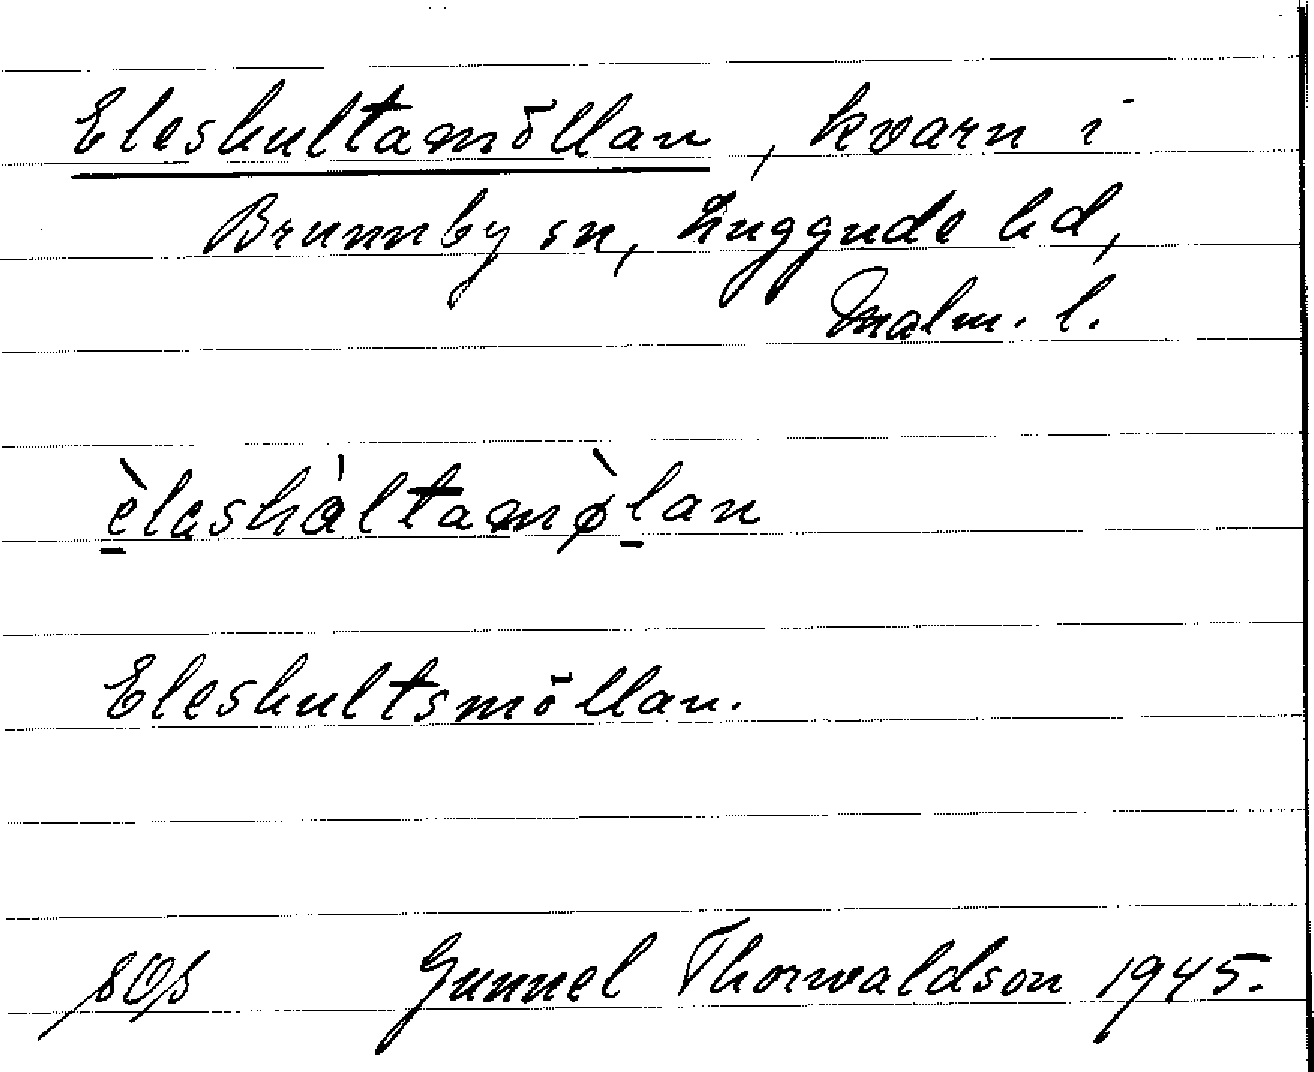 Eleshultamöllan, kvarn i
Brunnby sn, Luggude hd,
Malm. l.
èlashàltamø̀lan
Eleshultsmöllan.
Gunnel Thorwaldson 1945.